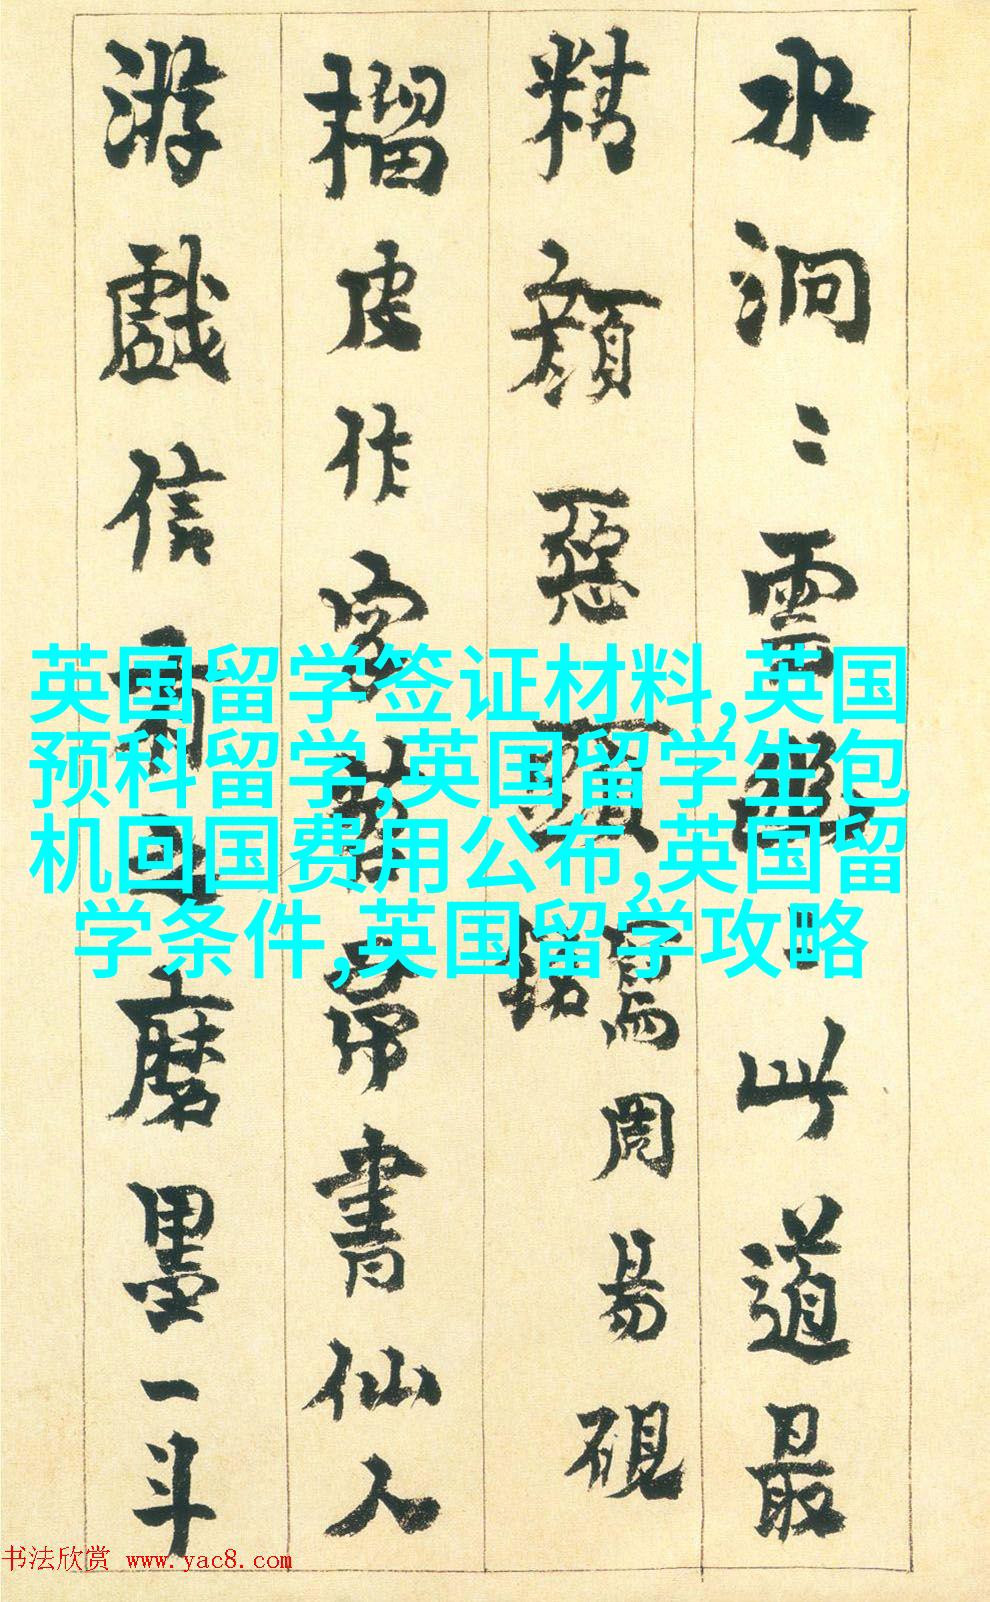 水洞〻雲散〻此道最
精顔惡頭寫周易硯
榴皮作字苕帚書仙人
游戲信有之磨墨一斗
英国留学签证材料,英国
预科留学,英国留学生包
机回国费用公布,英国留
学条件,英国留学攻略
书法欣赏 www.yac8.com